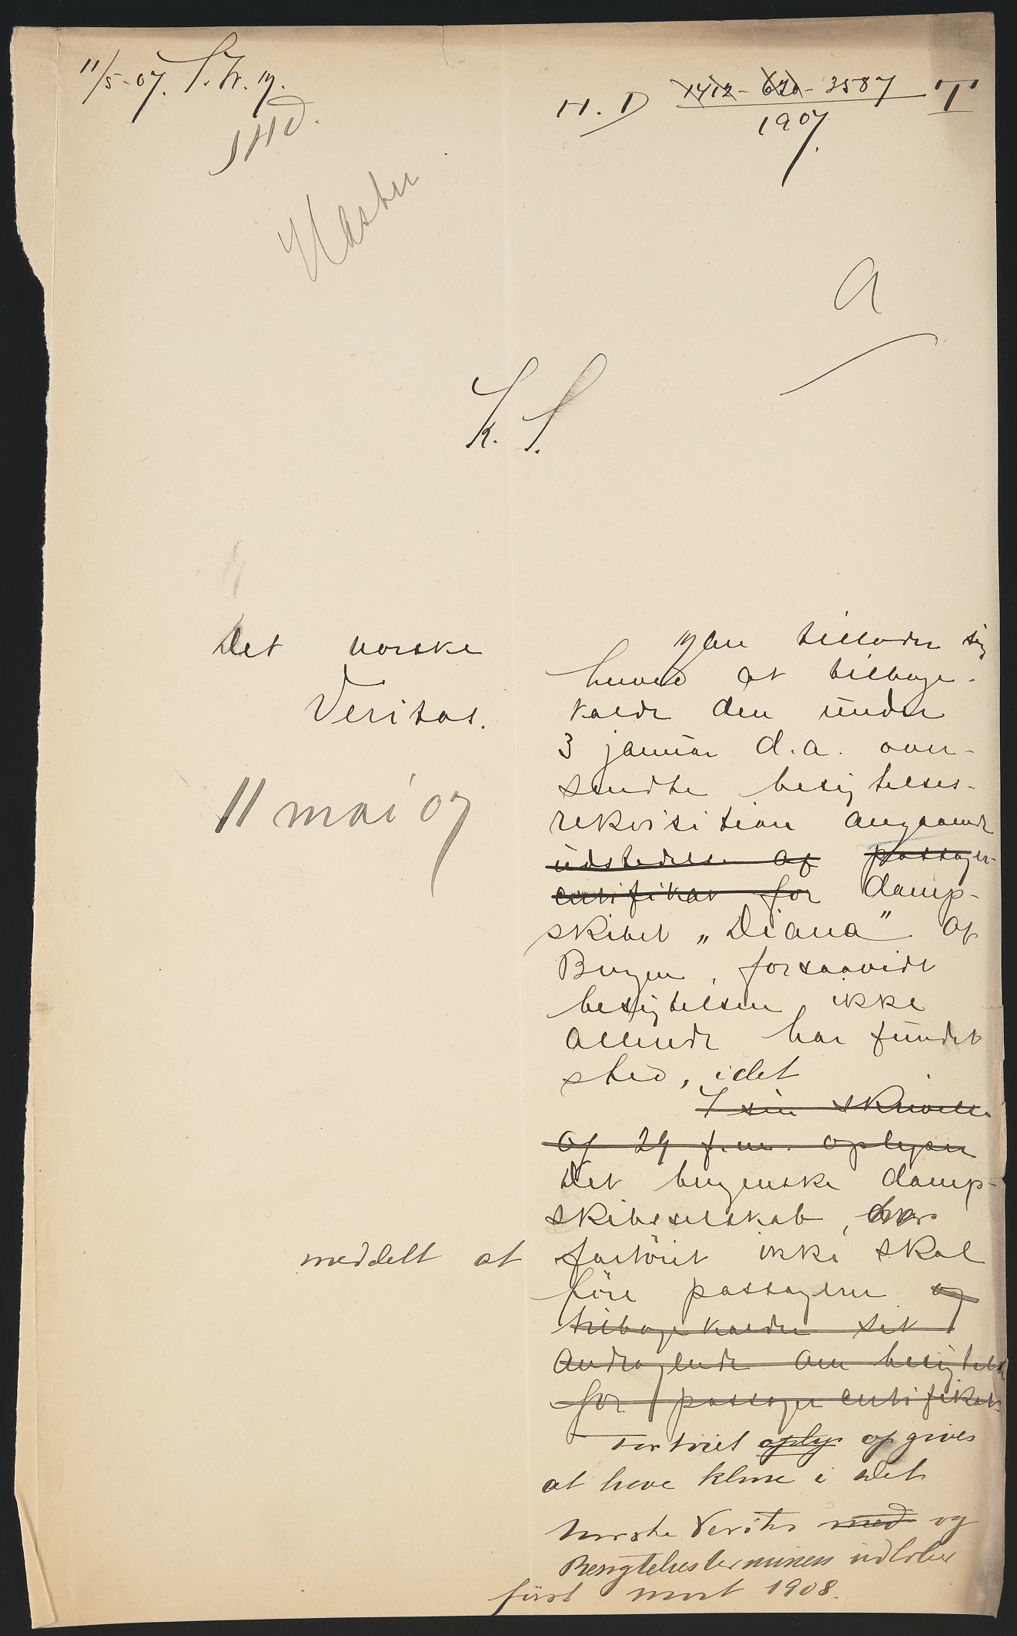 11/5-07.
H. D 1412 - 620 - 3587 T
1907.
Haster
a
K. S.
Det norske
Veritas.
11 mai 07
Man tillader sig
herved at tilbage-
kalde den under
3 januar d.a. over-
sendte besigtelses-
rekvisition angaaende
udstedelse af passager-
certifikat for damp-
skibet „Diana” af
Bergen, forsaavidt
besigtelsen ikke
allerede har fundet
sted, idet
I sin skrivelse
af 29 f.m. oplyser
Det bergenske damp-
skibsselskab, har
meddelt at fartöiet ikke skal
före passagerer og
tilbagekalder sit
andragende om besigtelse
for passagercertifikat.
Fartöiet oply opgives
at have klasse i det
norske Veritas med og
Besigtelsesterminen udlöber
först mart 1908.